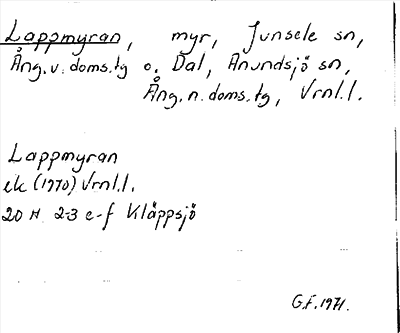 Lappmyran, myr, Junsele sn,
Ång.v.doms.tg o. Dal, Anundsjö sn,
Ång.n.doms.tg, Vrnl.l.
Lappmyran
ek (1970) Vrnl.l.
20 H 2-3 e-f Kläppsjö
G.F. 1971.